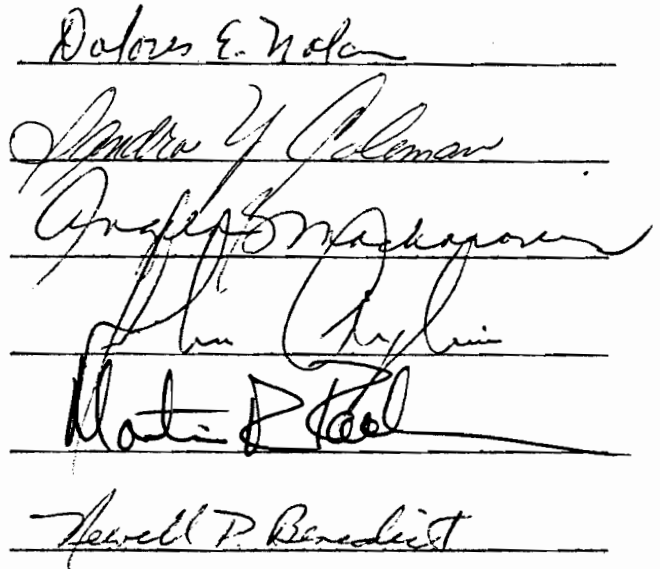 Dolores E. Nolan
Sandra Y Coleman
Angela B
John
Martin R
Newell D. Benedict